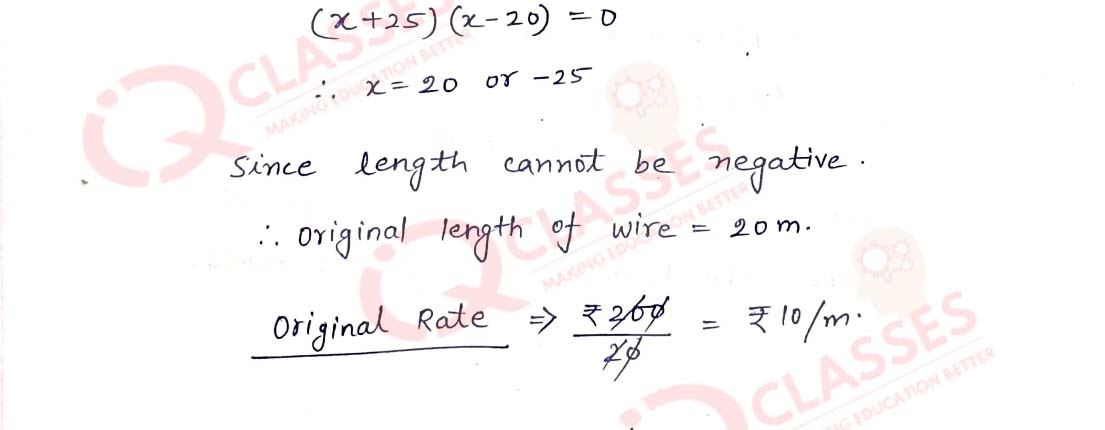 (x+25)(x-20) = 0
∴ x = 20 or -25
Since length cannot be negative.
∴ original length of wire = 20 m.
Original Rate ⇒ ₹200/20 = ₹10/m.
QCLASSES
MAKING EDUCATION BETTER
QCLASSES
MAKING EDUCATION BETTER
QCLASSES
MAKING EDUCATION BETTER